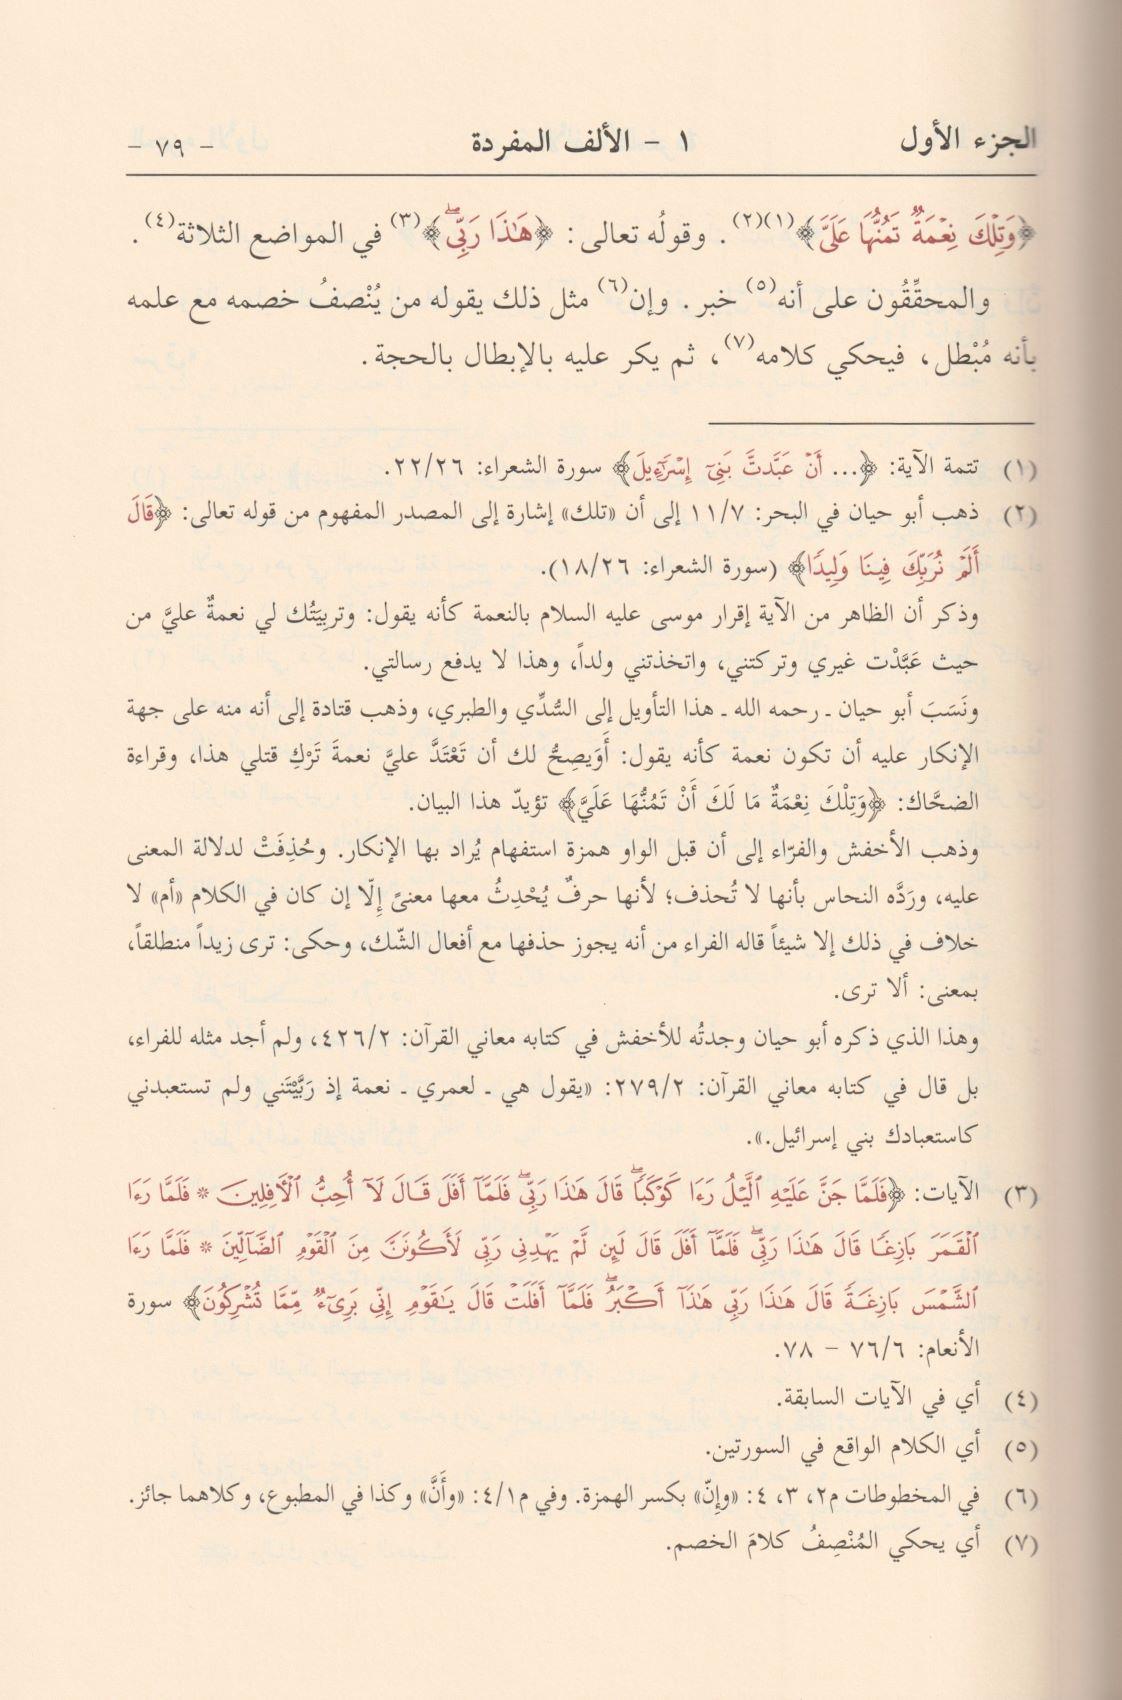 الجزء الأول
١ - الألف المفردة
- ٧٩ -
﴿وَتِلْكَ نِعْمَةٌ تَمُنُّهَا عَلَيَّ﴾(١)(٢). وقولُه تعالى: ﴿هَٰذَا رَبِّي﴾(٣) في المواضع الثلاثة(٤).
والمحقِّقُون على أنه(٥) خبر. وإن(٦) مثل ذلك يقوله من يُنْصفُ خصمه مع علمه
بأنه مُبْطل، فيحكي كلامه(٧)، ثم يكر عليه بالإبطال بالحجة.
(١) تتمة الآية: ﴿... أَنْ عَبَّدتَّ بَنِي إِسْرَٰٓءِيلَ﴾ سورة الشعراء: ٢٢/٢٦.
(٢) ذهب أبو حيان في البحر: ١١/٧ إلى أن «تلك» إشارة إلى المصدر المفهوم من قوله تعالى: ﴿قَالَ
أَلَمْ نُرَبِّكَ فِينَا وَلِيدًا﴾ (سورة الشعراء: ١٨/٢٦).
وذكر أن الظاهر من الآية إقرار موسى عليه السلام بالنعمة كأنه يقول: وتربِيَتُك لي نعمةٌ عليَّ من
حيث عَبَّدْت غيري وتركتني، واتخذتني ولداً، وهذا لا يدفع رسالتي.
ونَسَبَ أبو حيان ـ رحمه الله ـ هذا التأويل إلى السُّدِّي والطبري، وذهب قتادة إلى أنه منه على جهة
الإنكار عليه أن تكون نعمة كأنه يقول: أَوَيصِحُّ لك أن تَعْتَدَّ عليَّ نعمةَ تَرْكِ قتلي هذا، وقراءة
الضحَّاك: ﴿وَتِلْكَ نِعْمَةٌ مَا لَكَ أَنْ تَمُنُّهَا عَلَيَّ﴾ تؤيدّ هذا البيان.
وذهب الأخفش والفرّاء إلى أن قبل الواو همزة استفهام يُراد بها الإنكار. وحُذِفَتْ لدلالة المعنى
عليه، ورَدَّه النحاس بأنها لا تُحذف؛ لأنها حرفٌ يُحْدِثُ معها معنىً إِلّا إن كان في الكلام «أم» لا
خلاف في ذلك إلا شيئاً قاله الفراء من أنه يجوز حذفها مع أفعال الشّك، وحكى: ترى زيداً منطلقاً،
بمعنى: ألا ترى.
وهذا الذي ذكره أبو حيان وجدتُه للأخفش في كتابه معاني القرآن: ٤٢٦/٢، ولم أجد مثله للفراء،
بل قال في كتابه معاني القرآن: ٢٧٩/٢: «يقول هي ـ لعمري ـ نعمة إذ رَبَّيْتَني ولم تستعبدني
كاستعبادك بني إسرائيل.».
(٣) الآيات: ﴿فَلَمَّا جَنَّ عَلَيْهِ ٱلَّيْلُ رَءَا كَوْكَبًا ۖ قَالَ هَٰذَا رَبِّي ۖ فَلَمَّآ أَفَلَ قَالَ لَآ أُحِبُّ ٱلْأَفِلِينَ * فَلَمَّا رَءَا
ٱلْقَمَرَ بَازِغًا قَالَ هَٰذَا رَبِّي ۖ فَلَمَّآ أَفَلَ قَالَ لَئِن لَّمْ يَهْدِنِي رَبِّي لَأَكُونَنَّ مِنَ ٱلْقَوْمِ ٱلضَّآلِّينَ * فَلَمَّا رَءَا
ٱلشَّمْسَ بَازِغَةً قَالَ هَٰذَا رَبِّي هَٰذَآ أَكْبَرُ ۖ فَلَمَّآ أَفَلَتْ قَالَ يَٰقَوْمِ إِنِّي بَرِيٓءٌ مِّمَّا تُشْرِكُونَ﴾ سورة
الأنعام: ٧٦/٦ - ٧٨.
(٤) أي في الآيات السابقة.
(٥) أي الكلام الواقع في السورتين.
(٦) في المخطوطات م٢، ٣، ٤: «وإِنّ» بكسر الهمزة. وفي م٤/١: «وأَنَّ» وكذا في المطبوع، وكلاهما جائز.
(٧) أي يحكي المُنْصِفُ كلامَ الخصم.